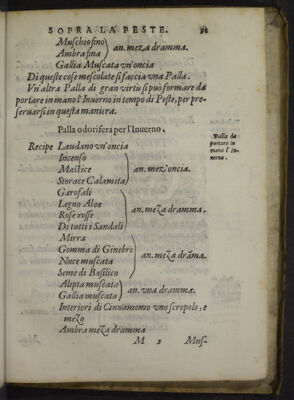 SOPRA LA PESTE. 91
Muschio fino
Ambra fina
an. meza dramma.
Gallia Muscata vn'oncia
Di queste cose mescolate si faccia vna Palla.
Vn'altra Palla di gran virtù si può formare da
portare in mano l'Inuerno in tempo di Peste, per pre-
seruarsi in questa maniera.
Palla odorifera per l'Inuerno.
Palla da
portare in
mano l'In-
uerno.
Recipe Laudano vn'oncia
Incenso
Mastice
Storace Calamita
an. mez'oncia.
Garofali
Legno Aloe
Rose rosse
Di tutti i Sandali
an. meza dramma.
Mirra
Gomma di Ginebro
Nuce muscata
Seme di Basilico
an. meza drāma.
Alipta muscata
Gallia muscata
an. vna dramma.
Interiori di Cinnamomo vno scropolo, e
mezo
Ambra meza dramma
M 2 Mus-